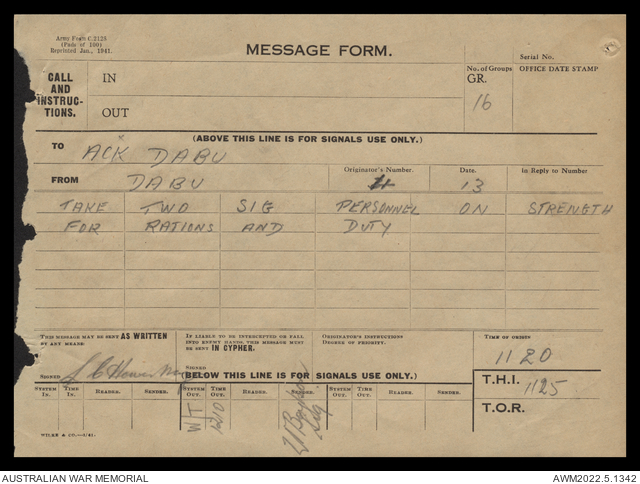 Army Form C.2128
(Pads of 100)
Reprinted Jan., 1941.
MESSAGE FORM.
Serial No.
CALL AND INSTRUC- TIONS.
IN
No. of Groups GR.
OFFICE DATE STAMP
16
OUT
(ABOVE THIS LINE IS FOR SIGNALS USE ONLY.)
TO ACK DABU
Originator's Number. Date. In Reply to Number
FROM DABU 13
TAKE TWO SIG PERSONNEL ON STRENGTH
FOR RATIONS AND DUTY
THIS MESSAGE MAY BE SENT AS WRITTEN BY ANY MEANS
IF LIABLE TO BE INTERCEPTED OR FALL INTO ENEMY HANDS, THIS MESSAGE MUST BE SENT IN CYPHER.
ORIGINATOR'S INSTRUCTIONS DEGREE OF PRIORITY.
TIME OF ORIGIN
1120
SIGNED
SIGNED
(BELOW THIS LINE IS FOR SIGNALS USE ONLY.)
T.H.I. 1125
SYSTEM IN. TIME IN. READER. SENDER. SYSTEM OUT. TIME OUT. READER. SENDER. SYSTEM OUT. TIME OUT. READER. SENDER.
W/T 1210 Sig
T.O.R.
WILKE & CO.—4/41.
AUSTRALIAN WAR MEMORIAL
AWM2022.5.1342